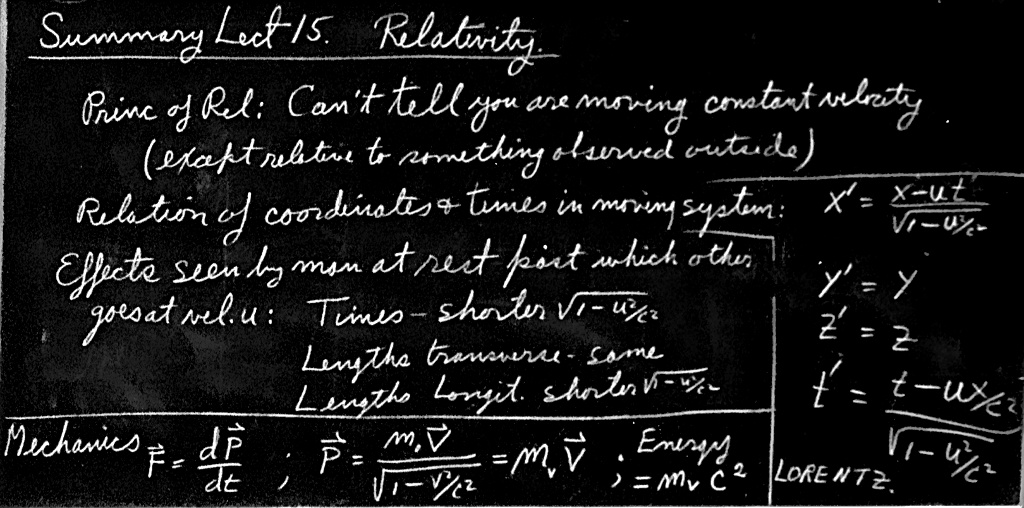 Summary Lect 15. Relativity.
Princ of Rel: Can't tell you are moving constant velocity.
(except relative to something observed outside)
Relation of coordinates & times in moving system:
x' = x-ut / √1-u²/c²
y' = y
z' = z
t' = t-ux/c² / √1-u²/c²
LORENTZ.
Effects seen by man at rest past which other
goes at vel. u: Times - shorter √1-u²/c²
Lengths transverse - same
Lengths Longit. shorter √1-u²/c²
Mechanics F⃗ = dP⃗/dt ; P⃗ = m₀V⃗ / √1-V²/c² = mᵥV⃗ ; Energy
= mᵥc²